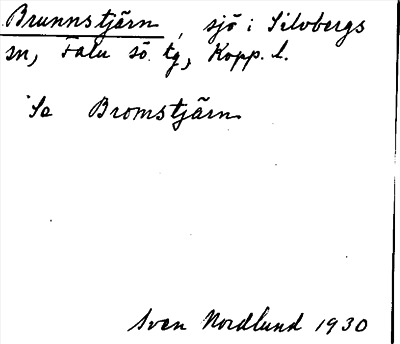 Brunnstjärn, sjö i Silvbergs
sn, Falu sö. tg, Kopp. l.
Se Bromstjärn
Sven Nordlund 1930